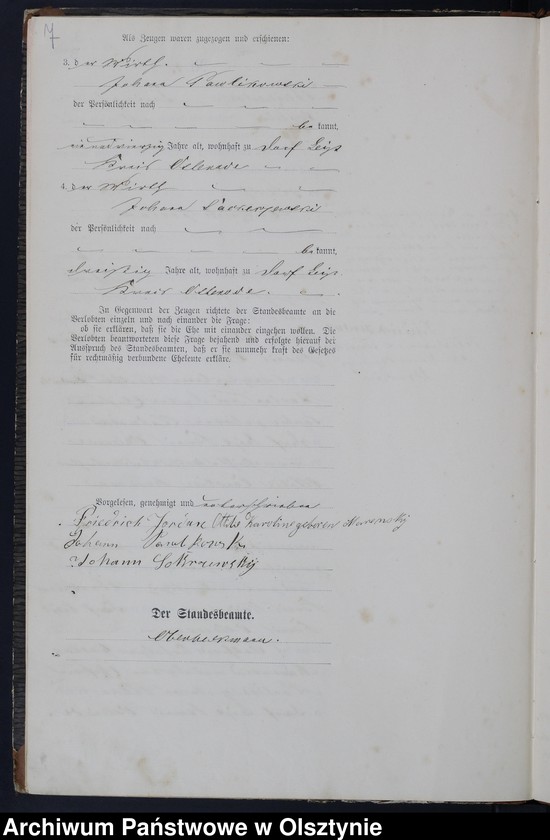 7
Als Zeugen waren zugezogen und erschienen:
3. der Wirth
Johann Pawlikowski
der Persönlichkeit nach
be kannt,
einundvierzig Jahre alt, wohnhaft zu Dorf
Kreis Osterode
4. der Wirth
Johann
der Persönlichkeit nach
be kannt,
dreißig Jahre alt, wohnhaft zu Dorf
Kreis Osterode.
In Gegenwart der Zeugen richtete der Standesbeamte an die
Verlobten einzeln und nach einander die Frage:
ob sie erklären, daß sie die Ehe mit einander eingehen wollen. Die
Verlobten beantworteten diese Frage bejahend und erfolgte hierauf der
Ausspruch des Standesbeamten, daß er sie nunmehr kraft des Gesetzes
für rechtmäßig verbundene Eheleute erkläre.
Vorgelesen, genehmigt und unterschrieben
Friedrich Karoline geboren
Johann
Johann
Der Standesbeamte.
Archiwum Państwowe w Olsztynie